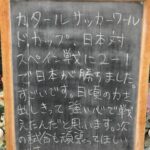 カタールサッカーワール
ドカップ、日本対
スペイン戦に2-1
で日本が勝ちました。
すごいです。日頃の力を
出しきって強い心で戦
えたんだと思います。次
の試合も頑張ってほしい